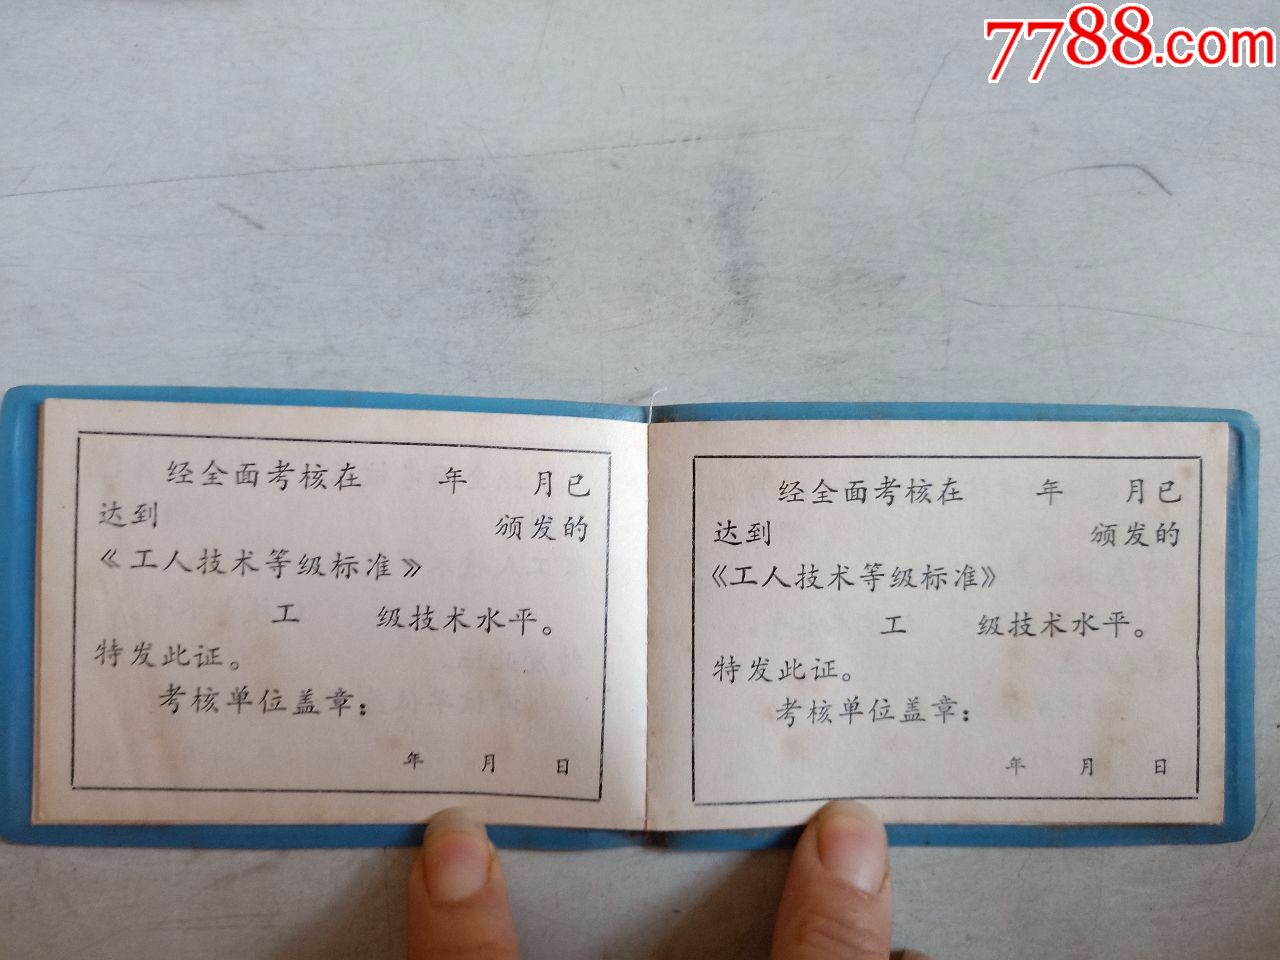 7788.com
经全面考核在 年 月已
达到 颁发的
《工人技术等级标准》
工 级技术水平。
特发此证。
考核单位盖章：
年 月 日
经全面考核在 年 月已
达到 颁发的
《工人技术等级标准》
工 级技术水平。
特发此证。
考核单位盖章：
年 月 日